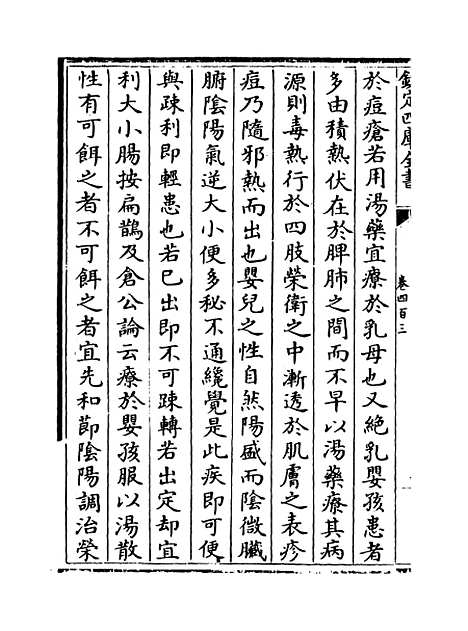 欽定四庫全書
卷四百三
於痘瘡若用湯藥宜療於乳母也又絶乳嬰孩患者
多由積熱伏在於脾肺之間而不早以湯藥療其病
源則毒熱行於四肢榮衛之中漸透於肌膚之表疹
痘乃隨邪熱而出也嬰兒之性自然陽盛而陰微臟
腑陰陽氣逆大小便多秘不通纔覺是此疾即可便
與疎利即輕患也若已出即不可疎轉若出定却宜
利大小腸按扁鵲及倉公論云療於嬰孩服以湯散
性有可餌之者不可餌之者宜先和節陰陽調治榮